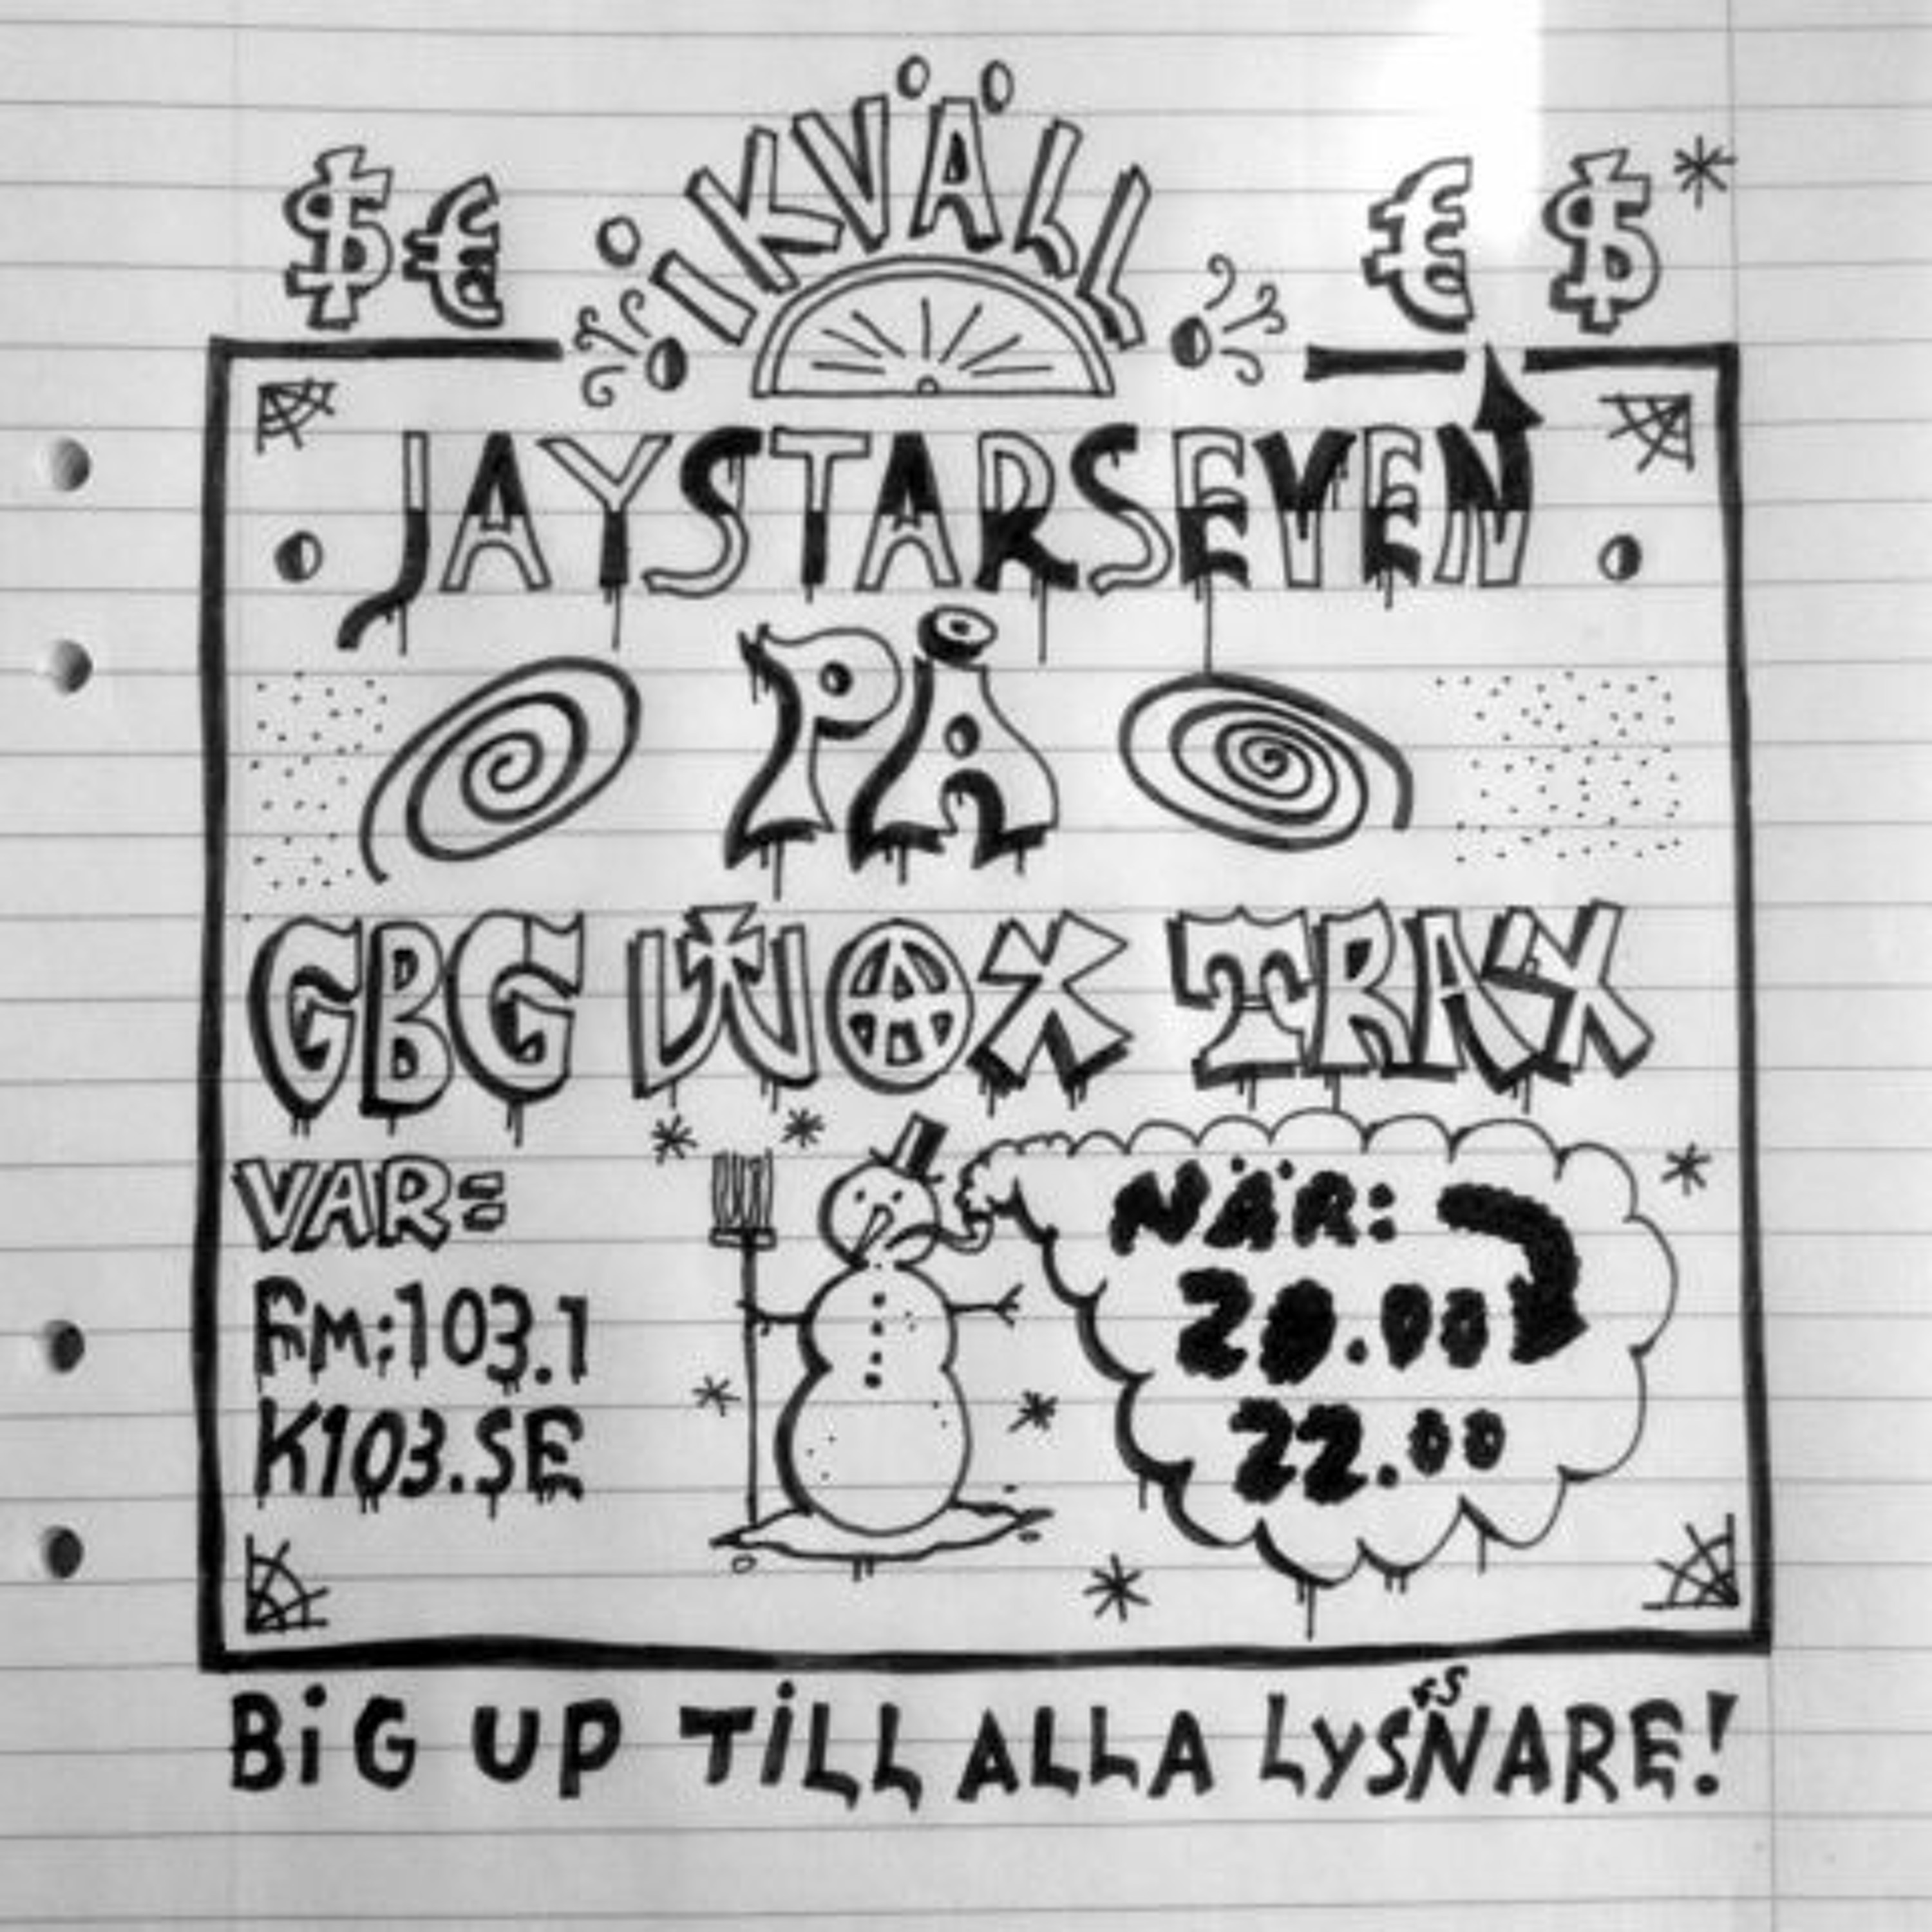 $ € iKVÄLL € $
JAYSTARSEVEN
PÅ
GBG WAX TRAX
VAR:
FM:103.1
K103.SE
NÄR:
20.00
22.00
BiG UP TiLL ALLA LYSNARE!